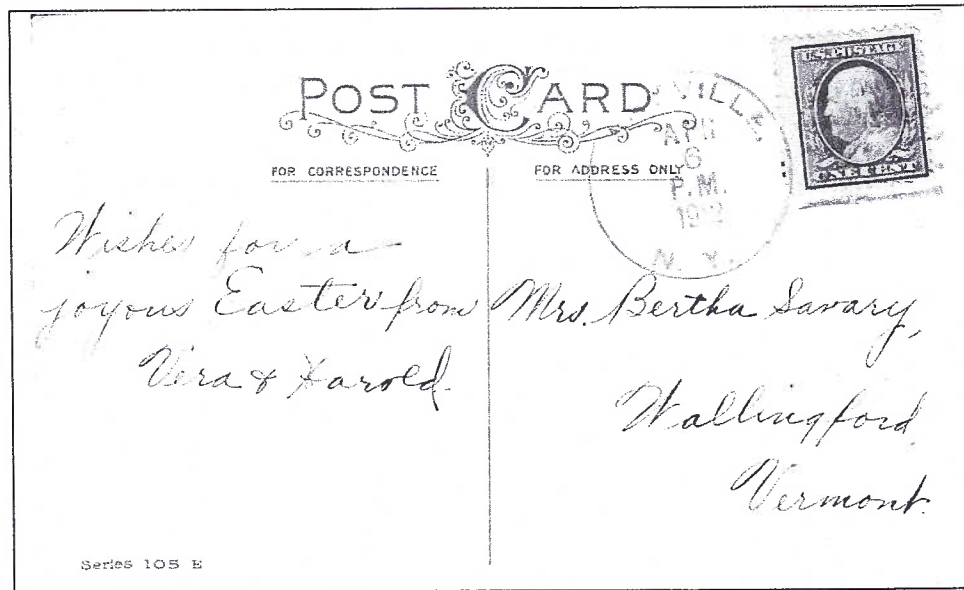 POST CARD
FOR CORRESPONDENCE
FOR ADDRESS ONLY
U.S. POSTAGE
ONE CENT
VILLE,
APR
6
P.M.
N. Y.
Wishes for a
joyous Easter from
Vera & Harold.
Mrs. Bertha Savary,
Wallingford
Vermont.
Series 105 E